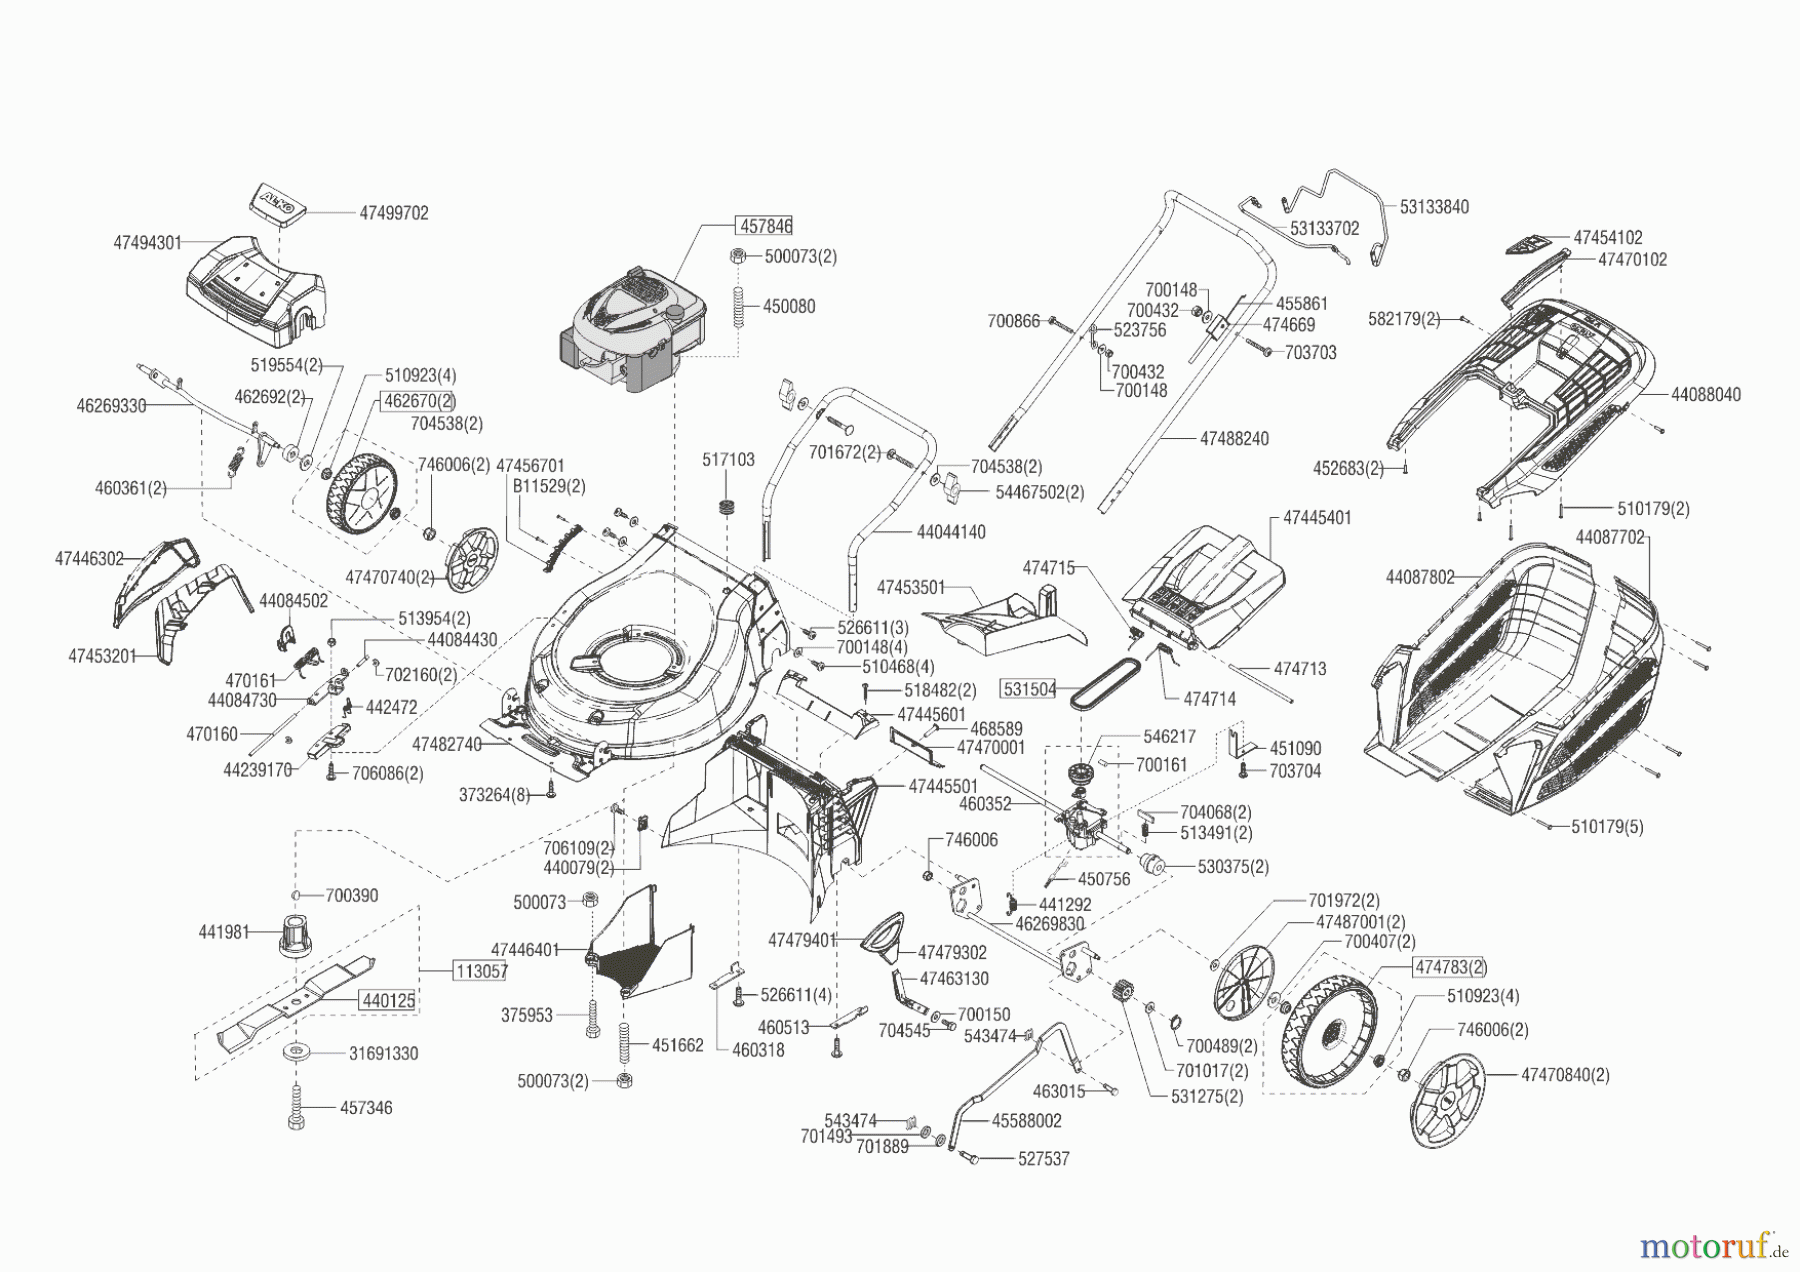 AL-KO
47499702
47494301
457846
500073(2)
450080
53133840
53133702
47454102
47470102
700148
700432
455861
474669
700866
523756
703703
700432
700148
582179(2)
44088040
519554(2)
510923(4)
462692(2)
462670(2)
46269330
704538(2)
47488240
701672(2)
517103
746006(2)
47456701
B11529(2)
460361(2)
704538(2)
54467502(2)
452683(2)
510179(2)
47445401
44044140
44087702
47446302
47470740(2)
474715
47453501
44087802
44084502
513954(2)
44084430
526611(3)
700148(4)
510468(4)
47453201
470161
702160(2)
474713
44084730
518482(2)
531504
474714
442472
47445601
470160
468589
546217
47482740
47470001
451090
44239170
706086(2)
700161
703704
47445501
373264(8)
460352
704068(2)
513491(2)
510179(5)
706109(2)
746006
440079(2)
530375(2)
450756
700390
500073
701972(2)
441292
46269830
47487001(2)
441981
47479401
700407(2)
47446401
47479302
113057
474783(2)
47463130
440125
526611(4)
510923(4)
375953
700150
460513
704545
543474
746006(2)
451662
460318
700489(2)
31691330
701017(2)
47470840(2)
500073(2)
463015
531275(2)
457346
543474
45588002
701493
701889
527537
motoruf.de